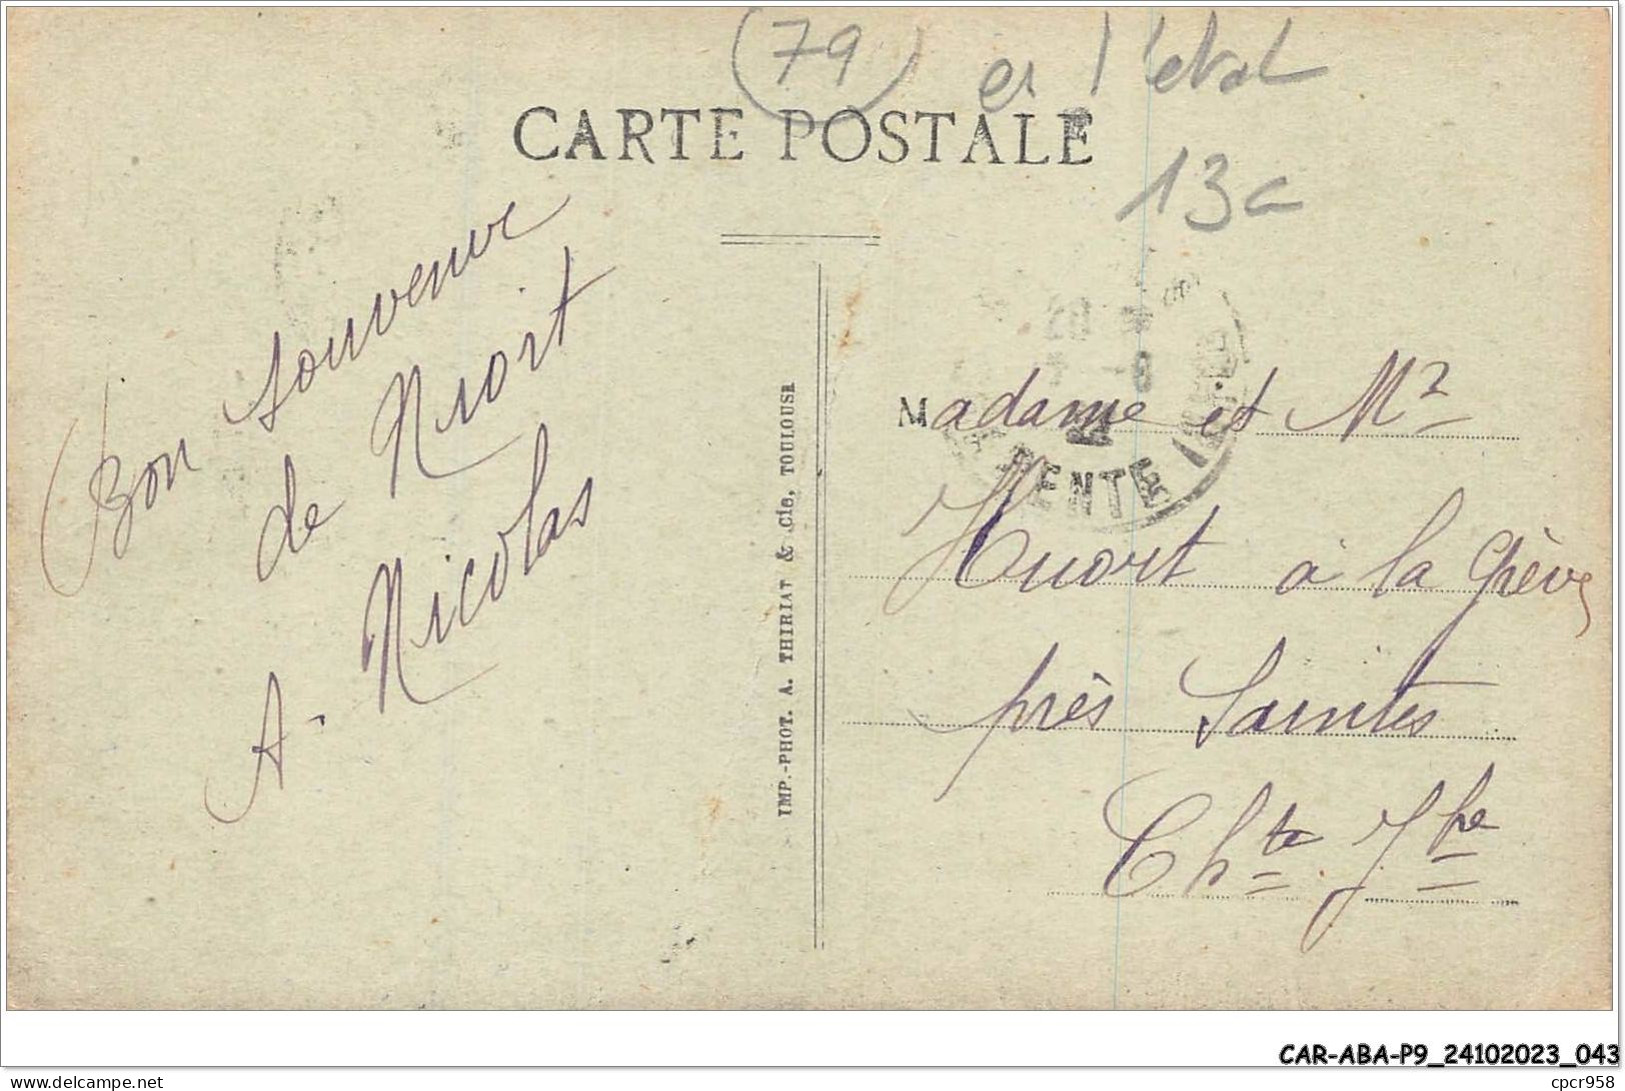 (79) en l'etat
CARTE POSTALE
13a
Bon souvenir
de Niort
A. Nicolas
IMP.-PHOT. A. THIRIAT & Cie, TOULOUSE
Madame et Mr
à la Grève
près Saintes
Chte Ifre
CAR-ABA-P9_24102023_043
www.delcampe.net
cpcr958